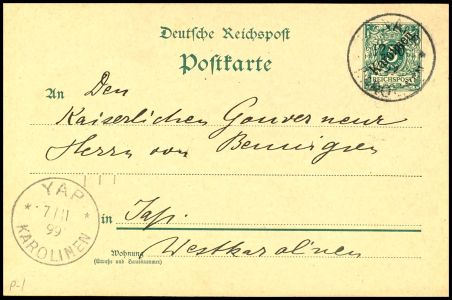 Deutsche Reichspost
Postkarte
Karolinen
REICHSPOST
An Den
Kaiserlichen Gouverneur
Herrn von Bennigsen
YAP
7/11
99
KAROLINEN
in Jap
Wohnung
(Straße und Hausnummer)
Westkarolinen
P-1